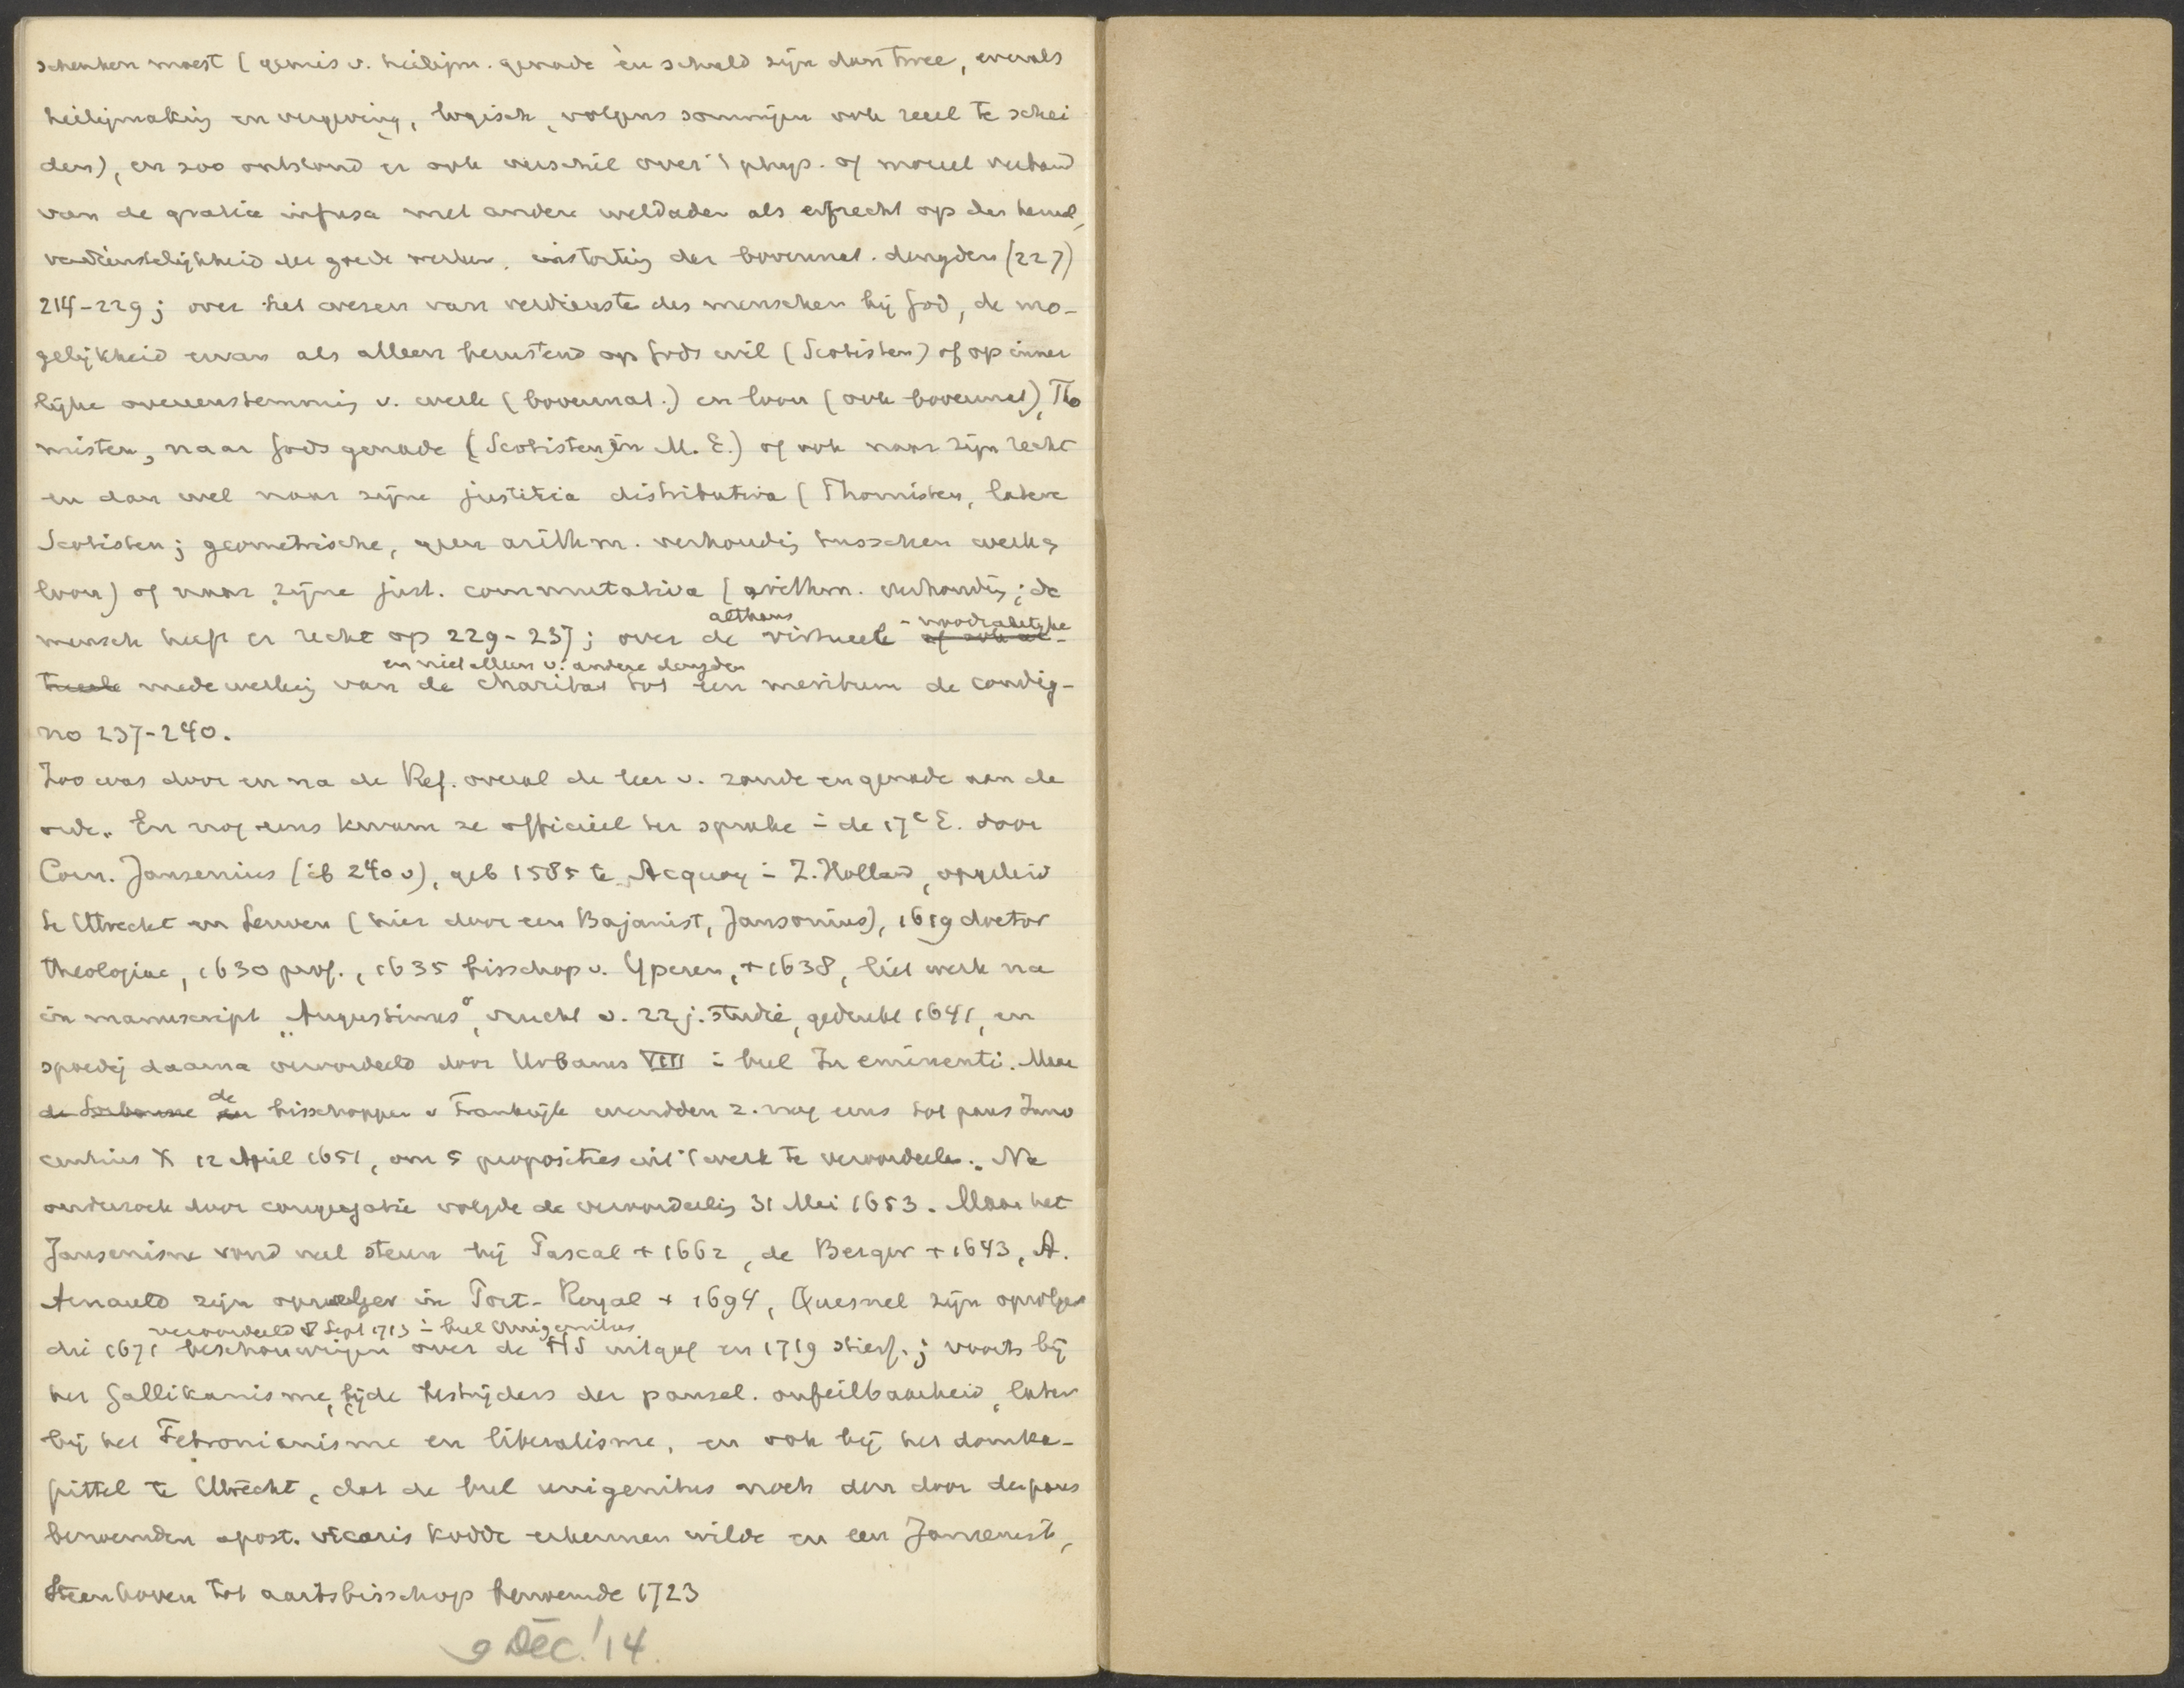 schenken moest (gemis v. heiligm. genade èn schuld zijn dan twee, evenals
heiligmaking en vergeving, logisch, volgens sommigen ook reeel te schei
den), en zoo ontstond er ook verschil over 't phys. of moreel verband
van de gratia infusa met andere weldaden als erfrecht op den hemel,
verdienstelijkheid der goede werken, instorting der bovennat. deugden (227)
214-229; over het wezen van verdienste des menschen bij God, de mo-
gelijkheid ervan als alleen berustend op Gods wil (Scotisten) of op inner
lijke overeenstemming v. werk (bovennat.) en loon (ook bovennat), Tho
misten, naar Gods genade (Scotisten in M. E.) of ook naar zijn recht
en dan wel naar zijne justitia distributiva (Thomisten, latere
Scotisten; geometrische, geen arithm. verhouding tusschen werk &
loon) of naar zijne just. commutativa (arithm. verhouding; de
mensch heeft er recht op 229-237; over de althans virtueele - noodzakelijke
medewerking van de charitas en niet alleen v. andere deugden tot een meritum de condig-
no 237-240.
Zoo was door en na de Ref. overal de leer v. zonde en genade aan de
orde. En nog eens kwam ze officieel ter sprake i de 17e E. door
Corn. Jansenius (ib 240 v), geb 1585 te Acquoy i Z. Holland, opgeleid
te Utrecht en Leuven (hier door een Bajanist, Jansonius), 1619 doctor
theologiae, 1630 prof., 1635 bisschop v. Yperen, + 1638, liet werk na
in manuscript „Augustinus", vrucht v. 22 j. studie, gedrukt 1641, en
spoedig daarna veroordeeld door Urbanus VIII i bul In eminenti. Maar
de Sorbonne de bisschoppen v Frankrijk wendden z. nog eens tot paus Inno
centius X 12 April 1651, om 5 proposities uit 't werk te veroordeelen. Na
onderzoek door congregatie volgde de veroordeeling 31 Mei 1653. Maar het
Jansenisme vond veel steun bij Pascal + 1662, de Berger + 1643, A.
Arnauld zijn opvolger in Port-Royal + 1694, Quesnel zijn opvolger
veroordeeld 8 Sept 1713 i bul Unigenitus
die 1671 beschouwingen over de HS uitgaf en 1719 stierf; voorts bij
het Gallikanisme, beide bestrijders der pausel. onfeilbaarheid, later
bij het Febronianisme en liberalisme, en ook bij het domka-
pittel te Utrecht, dat de bul unigenitus noch den door de paus
benoemden apost. vicaris Kodde erkennen wilde en een Jansenist,
Steenhoven tot aartsbisschop benoemde 1723
9 Dec. '14.